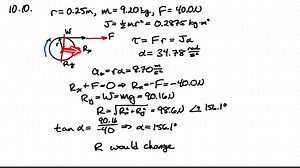 10.10.
r = 0.25m, m = 9.20kg, F = 40.0N
J = ½mr² = 0.2875 kg·m²
W
F
Rx
Ry
τ = Fr = Jα
α = 34.78 rad/s²
aₓ = rα = 8.70 m/s²
Rx + F = 0 ⇒ Rx = -F = -40.0N
Ry = W = mg = 90.16N
R = √(Rx² + Ry²) = 98.6N ∠ 156.1°
tan α = 90.16/-40 ⇒ α = 156.1°
R would change